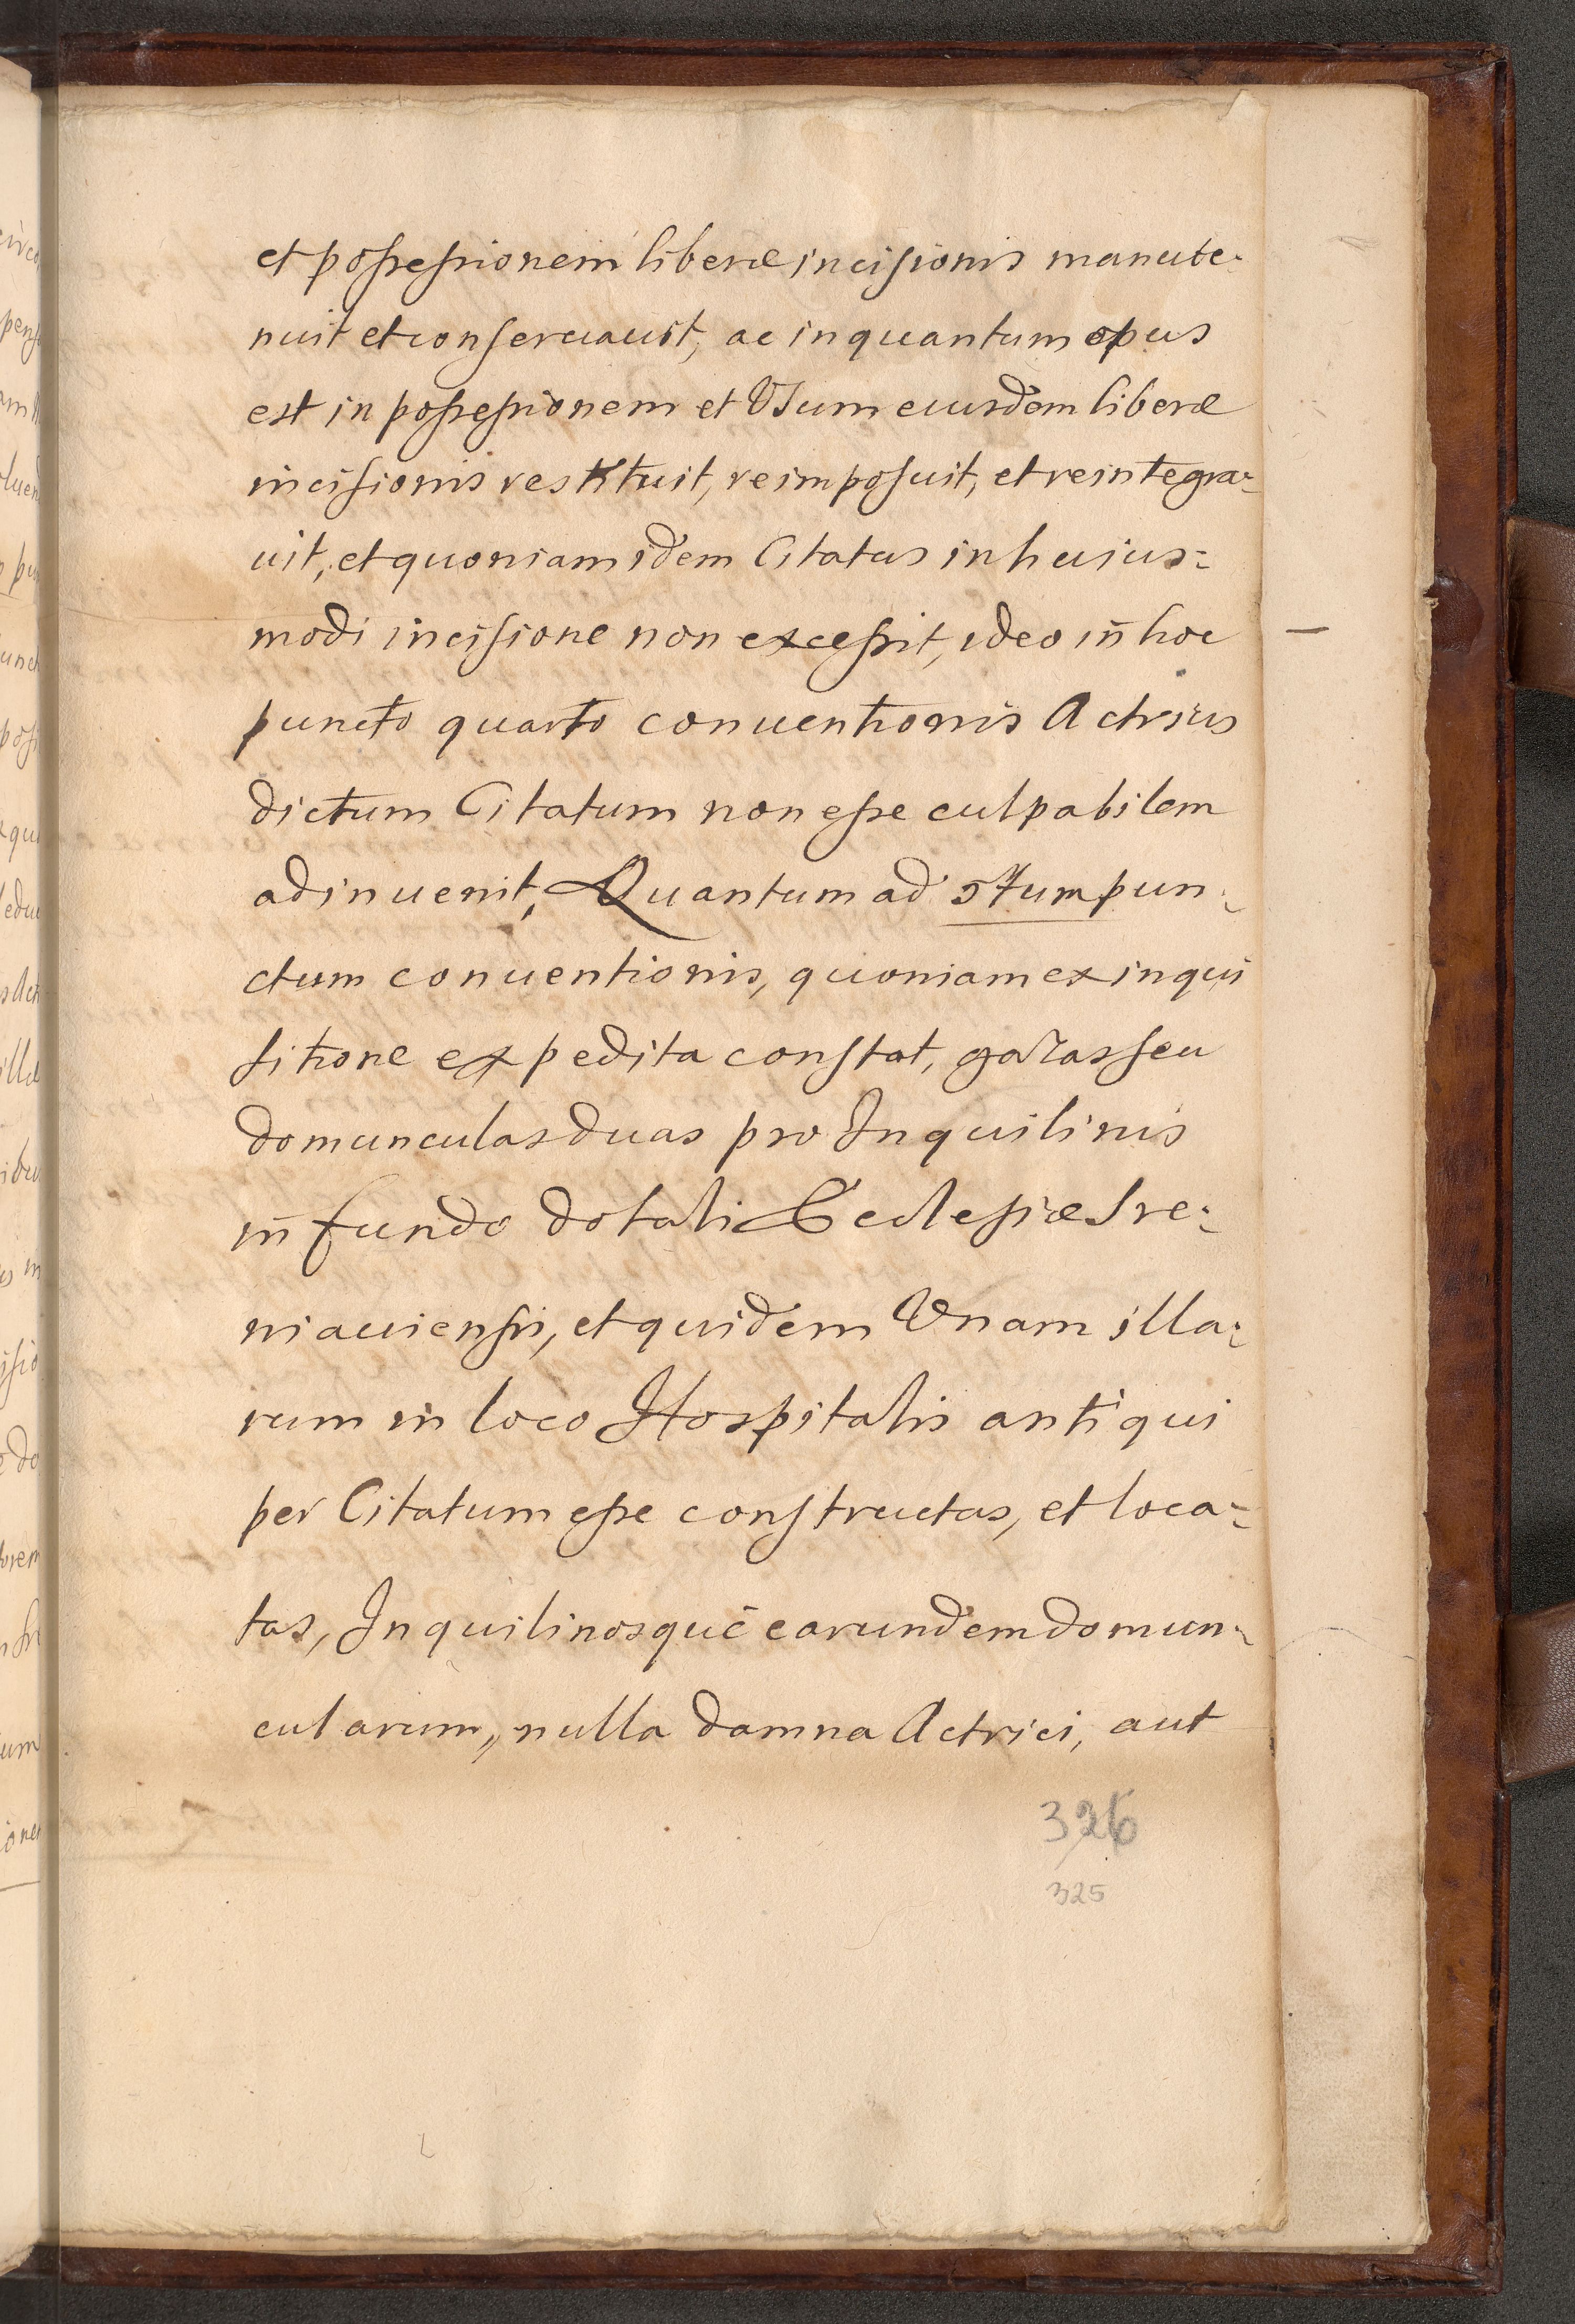 et possessionem liberæ incisionis manute-
nuit et conseruauit, ac inquantum opus
est in possessionem et Usum eiusdem liberæ
incisionis restituit, reimposuit, et reintegra-
uit, et quoniam idem Citatus in huius-
modi incisione non excessit, ideo in hoc
puncto quarto conuentionis Actricis
dictum Citatum non esse culpabilem
adinuenit, Quantum ad 5tum pun-
ctum conuentionis, quoniam ex inqui
sitione expedita constat, gazas seu
domunculas duas pro Inquilinis
in fundo dotali Ecclesiæ Sre-
niauiensis, et quidem Unam illa-
rum in loco Hospitalis antiqui
per Citatum esse constructas, et loca-
tas, Inquilinosque earundem domun-
cularum, nulla damna Actrici, aut
326
325